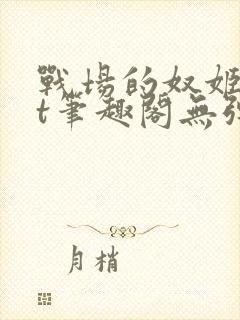 戰場的奴姬
t筆趣閣無彈
月梢